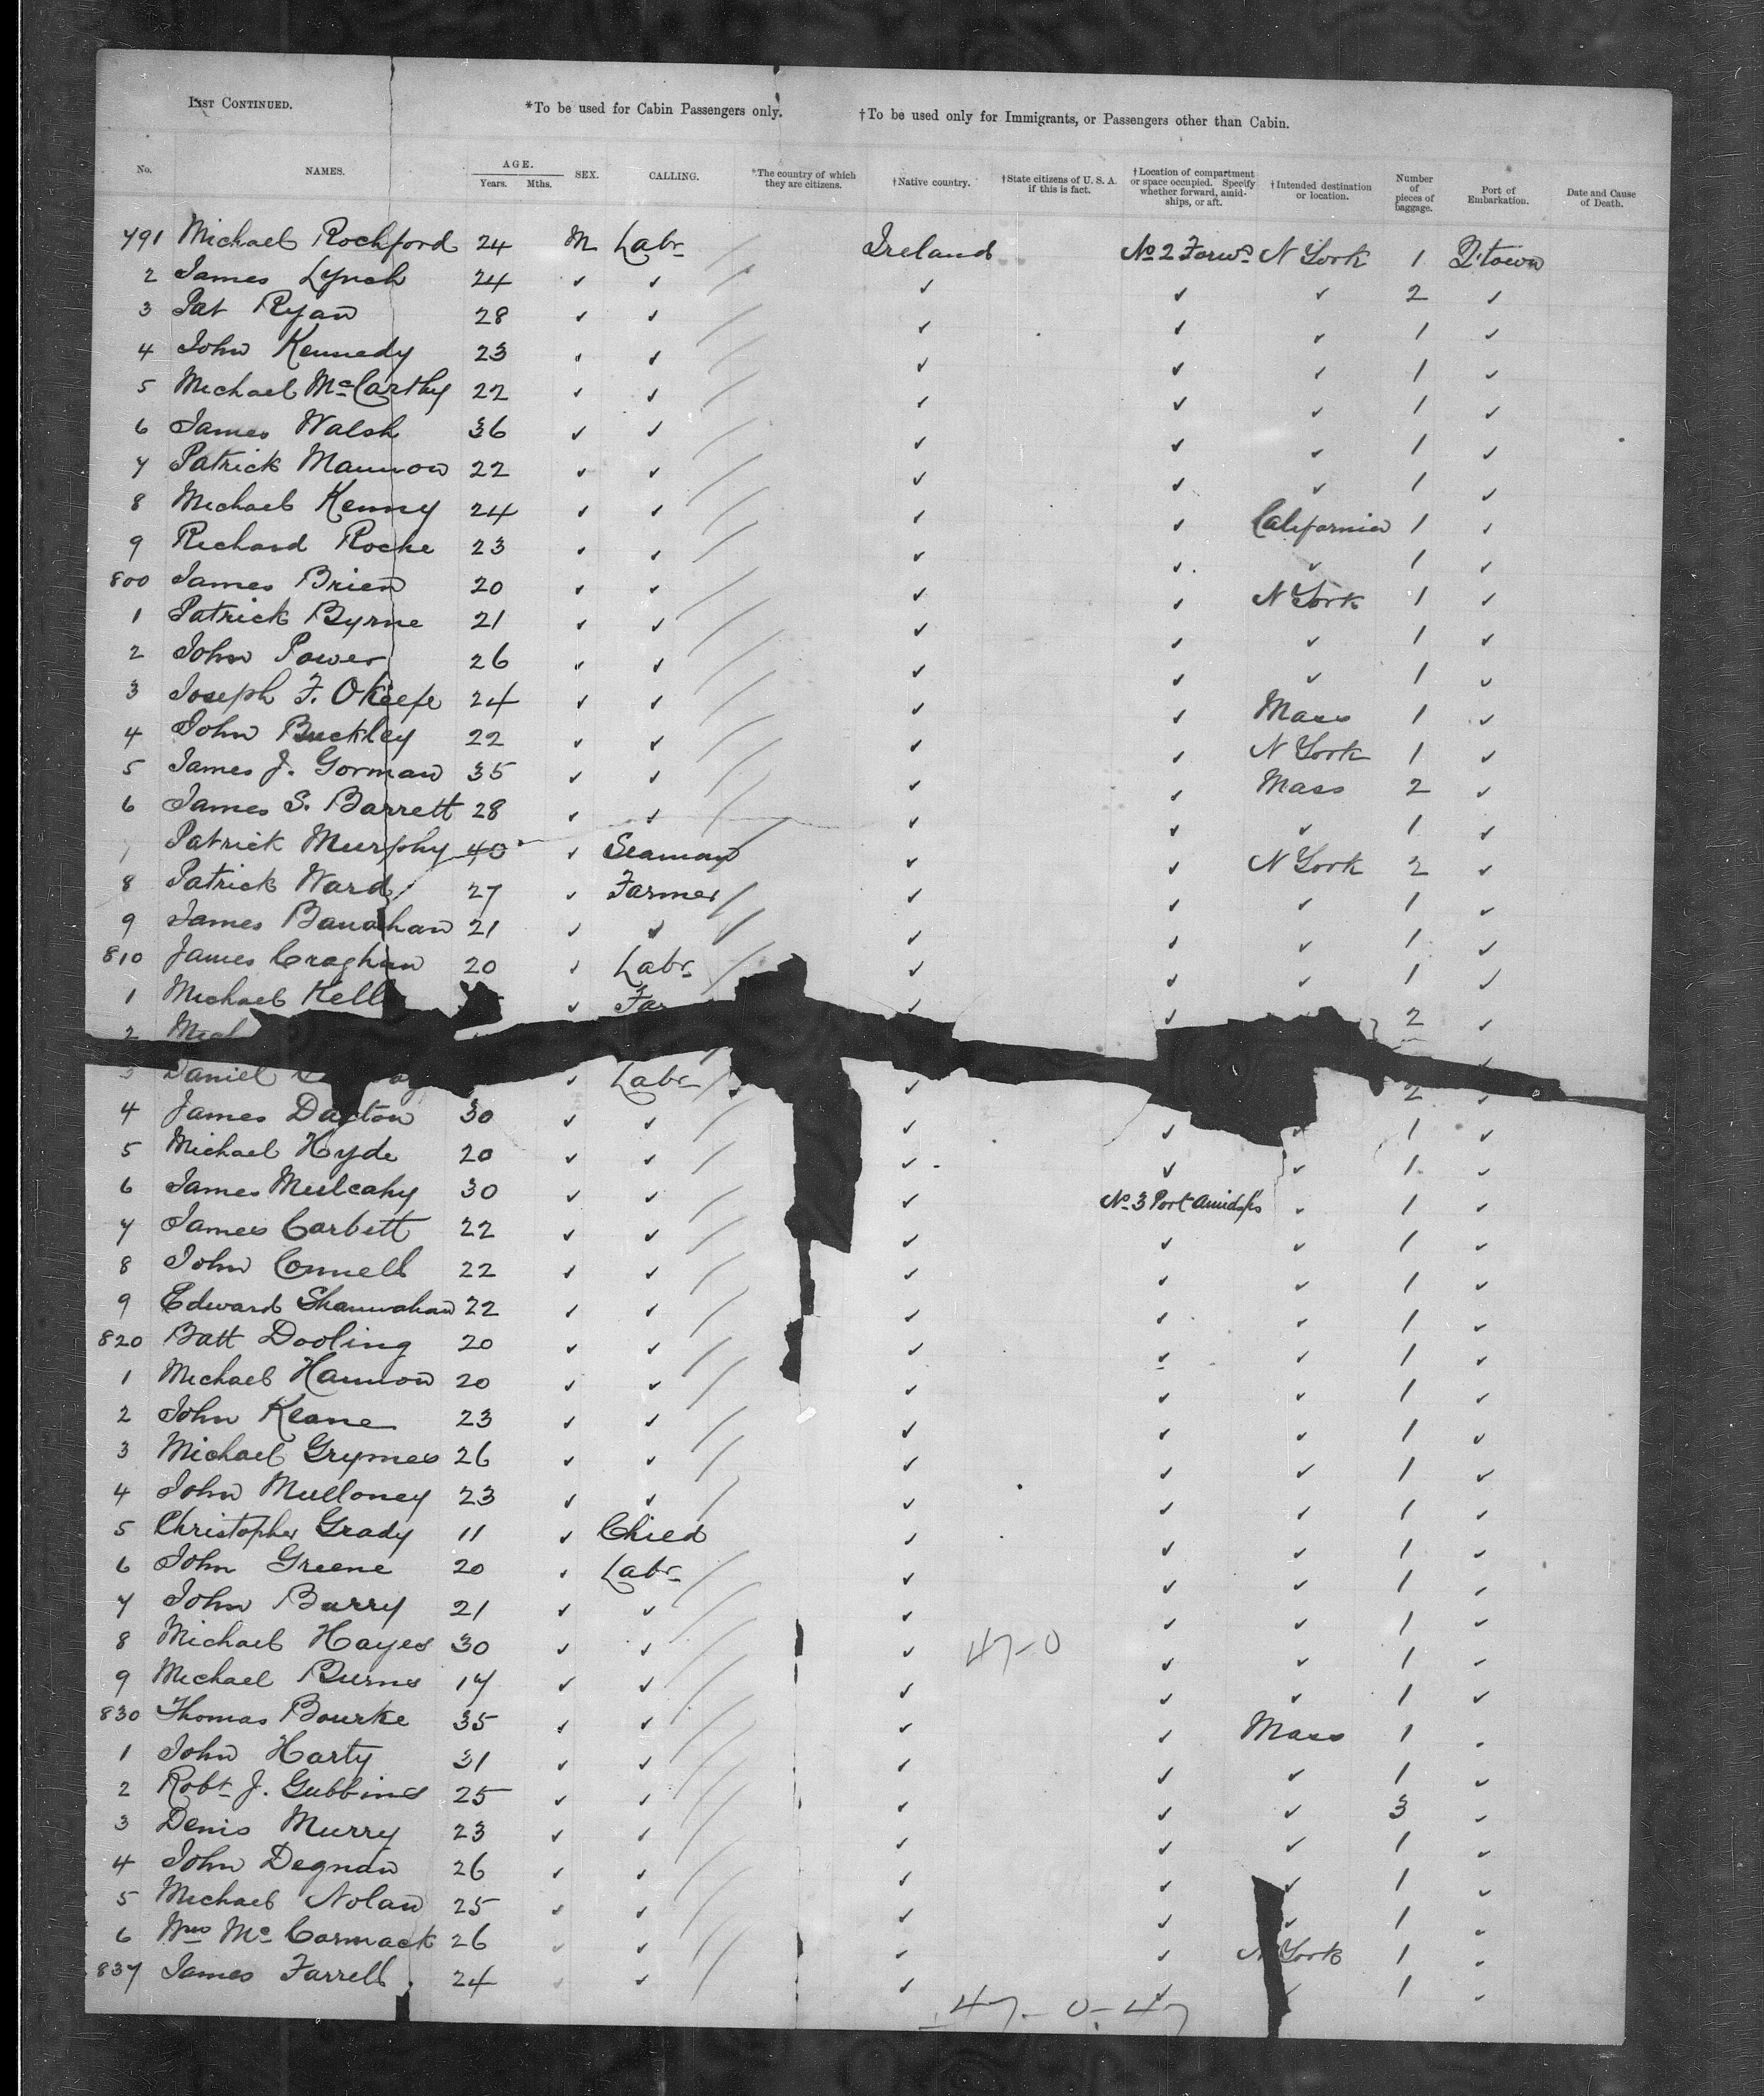 LIST CONTINUED. *To be used for Cabin Passengers only. †To be used only for Immigrants, or Passengers other than Cabin.
No. NAMES. AGE. Years. Mths. SEX. CALLING. *The country of which they are citizens. †Native country. †State citizens of U. S. A. if this is fact. †Location of compartment or space occupied. Specify whether forward, amid-ships, or aft. †Intended destination or location. Number of pieces of baggage. Port of Embarkation. Date and Cause of Death.
791 Michael Rochford 24 M Labr Ireland No 2 Forwd N York 1 Q'town
2 James Lynch 24 ✓ ✓ ✓ ✓ ✓ 2 ✓
3 Pat Ryan 28 ✓ ✓ ✓ ✓ ✓ 1 ✓
4 John Kennedy 23 ✓ ✓ ✓ ✓ ✓ 1 ✓
5 Michael McCarthy 22 ✓ ✓ ✓ ✓ ✓ 1 ✓
6 James Walsh 36 ✓ ✓ ✓ ✓ ✓ 1 ✓
7 Patrick Mannon 22 ✓ ✓ ✓ ✓ ✓ 1 ✓
8 Michael Kenny 24 ✓ ✓ ✓ ✓ California 1 ✓
9 Richard Roche 23 ✓ ✓ ✓ ✓ ✓ 1 ✓
800 James Brien 20 ✓ ✓ ✓ ✓ N York 1 ✓
1 Patrick Byrne 21 ✓ ✓ ✓ ✓ ✓ 1 ✓
2 John Power 26 ✓ ✓ ✓ ✓ ✓ 1 ✓
3 Joseph F. OKeefe 24 ✓ ✓ ✓ ✓ Mass 1 ✓
4 John Buckley 22 ✓ ✓ ✓ ✓ N York 1 ✓
5 James J. Gorman 35 ✓ ✓ ✓ ✓ Mass 2 ✓
6 James S. Barrett 28 ✓ ✓ ✓ ✓ ✓ 1 ✓
Patrick Murphy 40 ✓ Seaman ✓ ✓ N York 2 ✓
8 Patrick Ward 27 ✓ Farmer ✓ ✓ ✓ 1 ✓
9 James Banahan 21 ✓ ✓ ✓ ✓ ✓ 1 ✓
810 James Craghan 20 ✓ Labr ✓ ✓ ✓ 1 ✓
1 Michael Kell ✓ Far ✓ ✓ 2 ✓
2 Mich ✓
3 Daniel ✓ Labr ✓ 2 ✓
4 James Dayton 30 ✓ ✓ ✓ ✓ ✓ 1 ✓
5 Michael Hyde 20 ✓ ✓ ✓ ✓ ✓ 1 ✓
6 James Mulcahy 30 ✓ ✓ ✓ No 3 Port Amidsps ✓ 1 ✓
7 James Corbett 22 ✓ ✓ ✓ ✓ ✓ 1 ✓
8 John Connell 22 ✓ ✓ ✓ ✓ ✓ 1 ✓
9 Edward Shannahan 22 ✓ ✓ ✓ ✓ ✓ 1 ✓
820 Batt Dooling 20 ✓ ✓ ✓ ✓ ✓ 1 ✓
1 Michael Hannon 20 ✓ ✓ ✓ ✓ ✓ 1 ✓
2 John Keane 23 ✓ ✓ ✓ ✓ ✓ 1 ✓
3 Michael Grymes 26 ✓ ✓ ✓ ✓ ✓ 1 ✓
4 John Mulloney 23 ✓ ✓ ✓ ✓ ✓ 1 ✓
5 Christopher Grady 11 ✓ Child ✓ ✓ ✓ 1 ✓
6 John Greene 20 ✓ Labr ✓ ✓ ✓ 1 ✓
7 John Barry 21 ✓ ✓ ✓ ✓ ✓ 1 ✓
8 Michael Hayes 30 ✓ ✓ ✓ 47-0 ✓ ✓ 1 ✓
9 Michael Burns 17 ✓ ✓ ✓ ✓ ✓ 1 ✓
830 Thomas Bourke 35 ✓ ✓ ✓ ✓ Mass 1 ✓
1 John Harty 31 ✓ ✓ ✓ ✓ ✓ 1 ✓
2 Robt J. Gubbins 25 ✓ ✓ ✓ ✓ ✓ 3 ✓
3 Denis Murry 23 ✓ ✓ ✓ ✓ ✓ 1 ✓
4 John Degnan 26 ✓ ✓ ✓ ✓ ✓ 1 ✓
5 Michael Nolan 25 ✓ ✓ ✓ ✓ ✓ 1 ✓
6 Wm McCormack 26 ✓ ✓ ✓ ✓ N York 1 ✓
837 James Farrell 24 ✓ ✓ ✓ ✓ ✓ 1 ✓
47-0-47